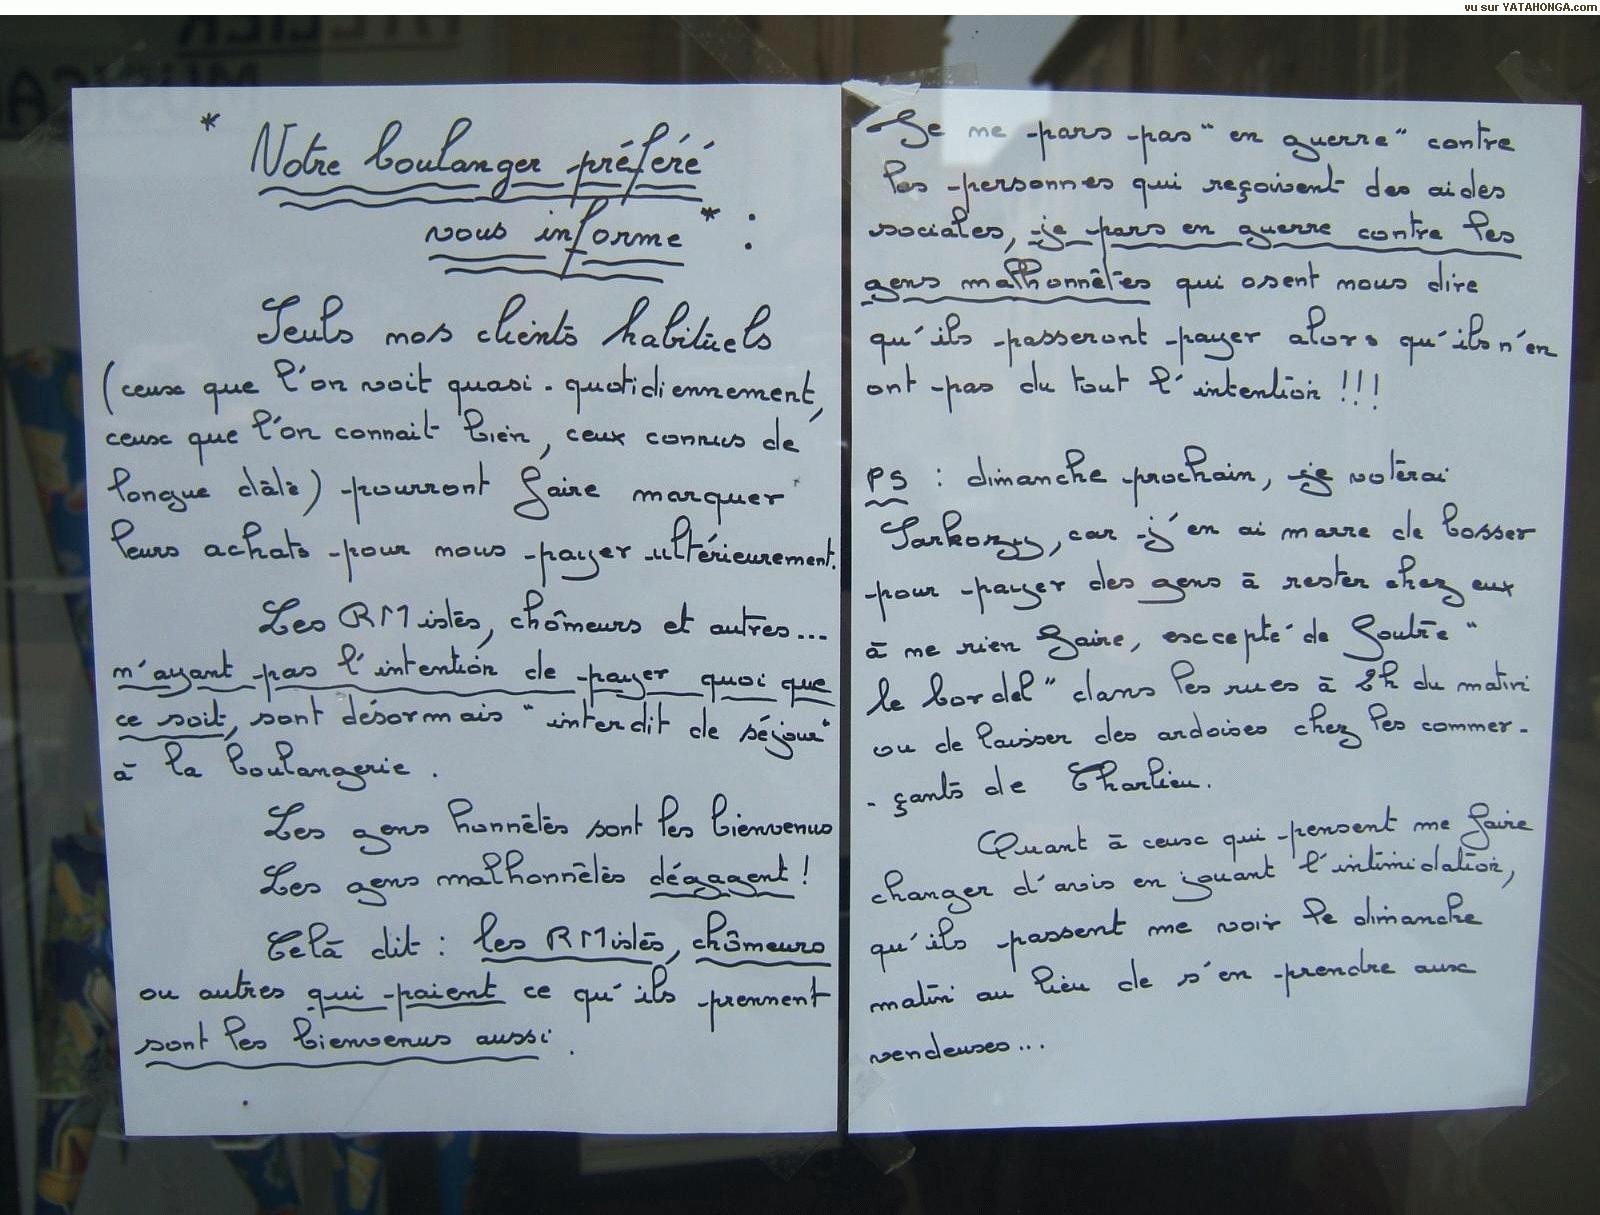 vu sur YATAHONGA.com
* Notre boulanger préféré
vous informe * :
Seuls nos clients habituels
(ceux que l'on voit quasi-quotidiennement,
ceux que l'on connait bien, ceux connus de
longue date) pourront faire marquer
leurs achats pour nous payer ultérieurement.
Les RMistes, chômeurs et autres...
n'ayant pas l'intention de payer quoi que
ce soit, sont désormais "interdit de séjour"
à la boulangerie.
Les gens honnêtes sont les bienvenus
Les gens malhonnêtes dégagent !
Celà dit : les RMistes, chômeurs
ou autres qui paient ce qu'ils prennent
sont les bienvenus aussi.
Je ne pars pas "en guerre" contre
les personnes qui reçoivent des aides
sociales, je pars en guerre contre les
gens malhonnêtes qui osent nous dire
qu'ils passeront payer alors qu'ils n'en
ont pas du tout l'intention !!!
PS : dimanche prochain, je voterai
Sarkozy, car j'en ai marre de bosser
pour payer des gens à rester chez eux
à ne rien faire, excepté de foutre "
le bordel" dans les rues à 2h du matin
ou de laisser des ardoises chez les commer-
-çants de Charlieu.
Quant à ceux qui pensent me faire
changer d'avis en jouant l'intimidation,
qu'ils passent me voir le dimanche
matin au lieu de s'en prendre aux
vendeuses...